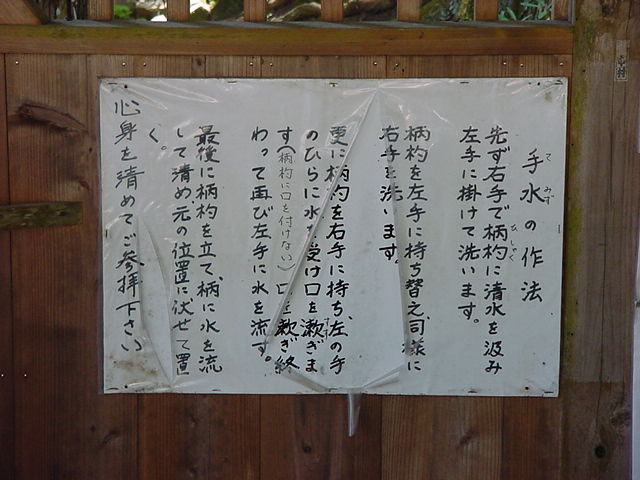 手水の作法
てみず
先ず右手で柄杓に清水を汲み
ひしゃく
左手に掛けて洗います。
柄杓を左手に持ち替え、同様に
右手を洗います。
更に柄杓を右手に持ち、左の手
のひらに水を受け口を漱ぎま
す(柄杓に口を付けない)口を漱ぎ終
わって再び左手に水を流す。
最後に柄杓を立て、柄に水を流
して清め元の位置に伏せて置
く。
心身を清めてご参拝下さい